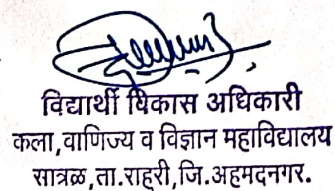 विद्यार्थी विकास अधिकारी
कला,वाणिज्य व विज्ञान महाविद्यालय
सात्रळ,ता.राहुरी,जि.अहमदनगर.